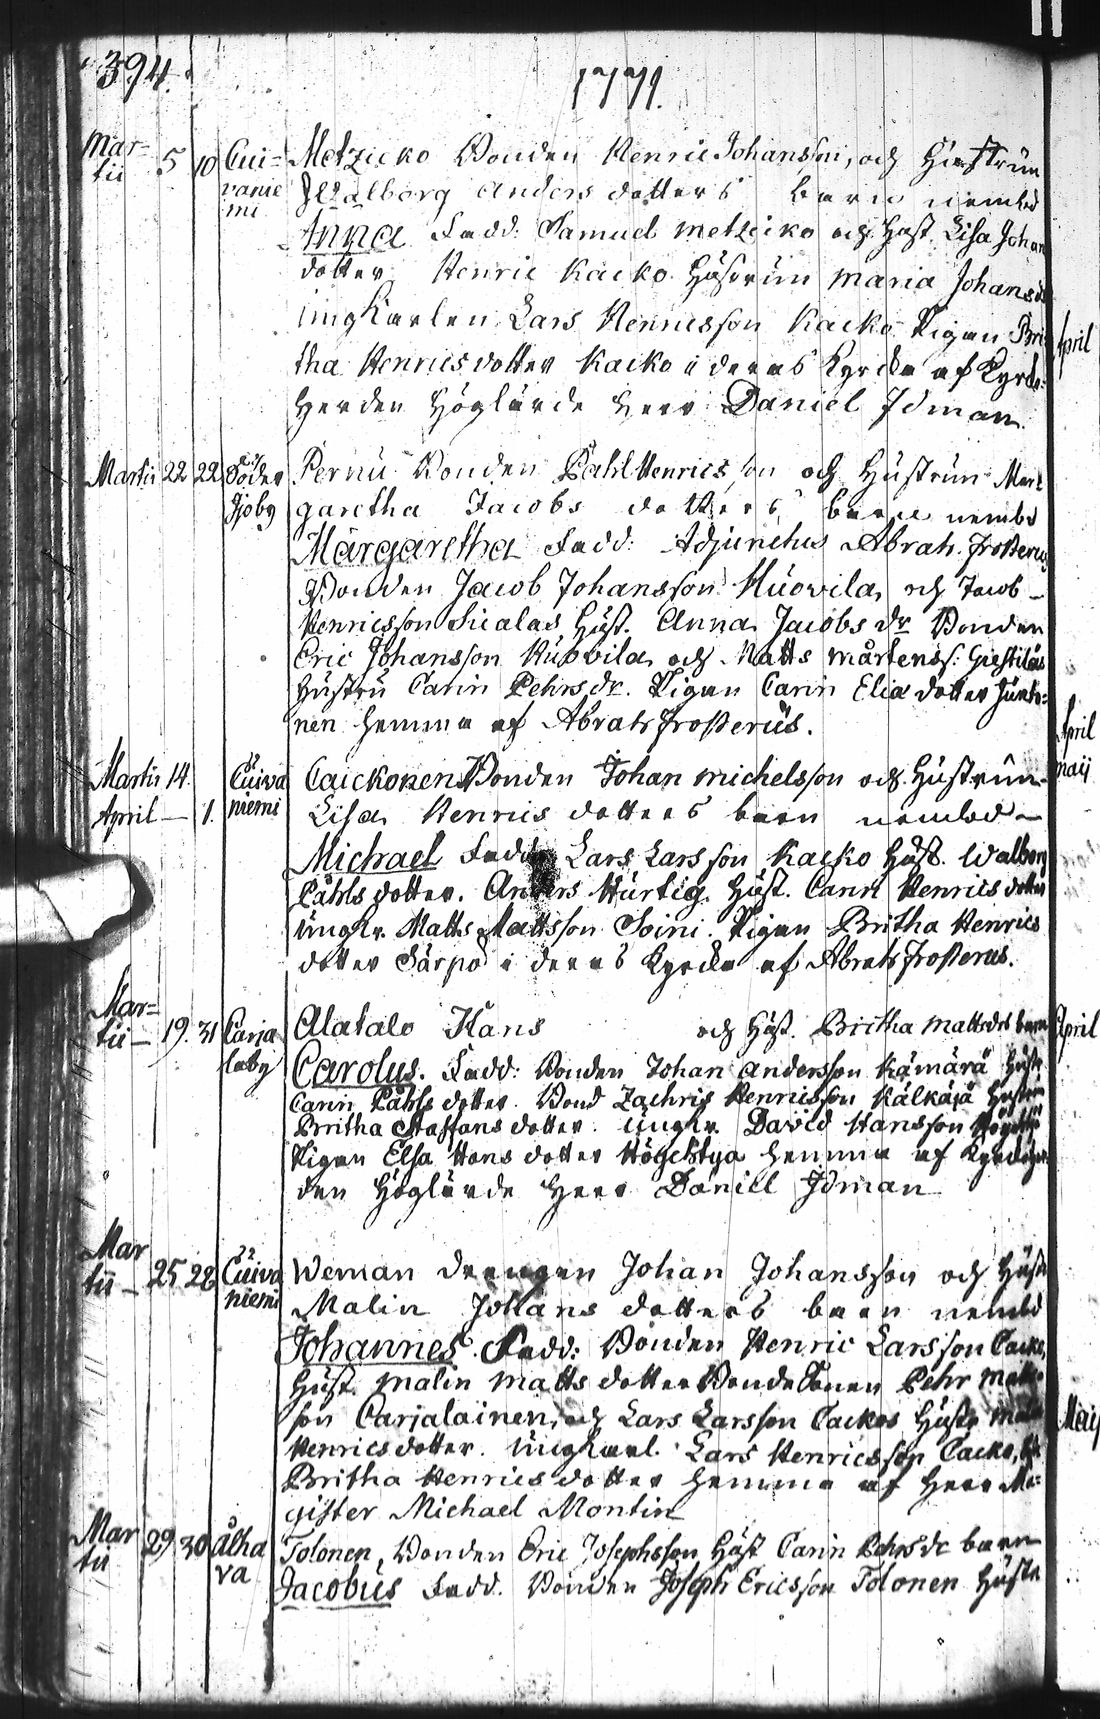 394.
1771.
Mar=
tii 5 10 Cui=
vanie
mi
Metzicko Bonden Henric Johansson, och Hustrun
Walborg Anders dotters barn nembd
Anna Fadd: Samuel Metzicko och Hust. Lisa Johans
dotter Henric Kacko Hustrun Maria Johansd
ungkarlen Lars Henricsson Kacko Pigan Bri
tha Henricsdotter Kacko i deras Kyrcka af Kyrcko=
Herden Höglärde Herr Daniel Idman
Martii 22 22 Söder
gjöby
Pernu Bonden Påhl Henricsson och Hustrun Mar
garetha Jacobs dotters barn nembd
Margaretha Fadd: Adjunctus Abrah. Frosterus
Bonden Jacob Johansson Huovila, och Jacob
Henricsson Sicalas Hust. Anna Jacobs dr Bonden
Eric Johansson Huovila och Matts Mårtenss: Giestilas
Hustru Carin Pehrs dr. Pigan Carin Elia dotter Junto=
nen hemma af Abrah Frosterus.
Martii 14.
April — 1. Cuiva
niemi
Caickonen Bonden Johan Michelsson och Hustrun
Lisa Henrics dotters barn nembd
Michael Fadd Lars Larsson Kacko Hust. Walborg
Påhls dotter. Anders Hurtig Hust. Carin Henrics dotter
Ungkr. Matts Mattsson Soini. Pigan Britha Henrics
dotter Särpä i deras Kyrcka af Abrah Frosterus.
Mar=
tii — 19. 31 Carja
laby
Alatalo Hans och Hust. Britha Mattsdrs barn
Carolus. Fadd: Bonden Johan Andersson Kämärä Hustr
Carin Påhls dotter. Bond Zachris Henricsson Kälkäjä Hustru
Britha Staffans dotter. Ungkr. David Hansson
Pigan Elsa Hans dotter Högehtya hemma af Kyrckoher
den Höglärde Herr Daniel Idman
Mar
tii — 25 28 Cuiva
niemi
Weman drengen Johan Johansson och Hust
Malin Johans dotters barn nembd
Johannes Fadd: Bonden Henric Larsson Cacko,
Hust. Malin Matts dotter Bonde Sonen Pehr Matts
son Carjalainen, och Lars Larsson Cackos Hustr
Henricsdotter. Ungkarl. Lars Henricsson Cacko,
Britha Henrics dotter hemma af Herr Ma=
gister Michael Montin
Mar
tii 29 30 Ålha
va
Tolonen, Bonden Eric Josephsson Hust Carin Pehrsdr barn
Jacobus Fadd. Bonden Joseph Ericsson Tolonen Hustr
April
April
maij
April
Maij